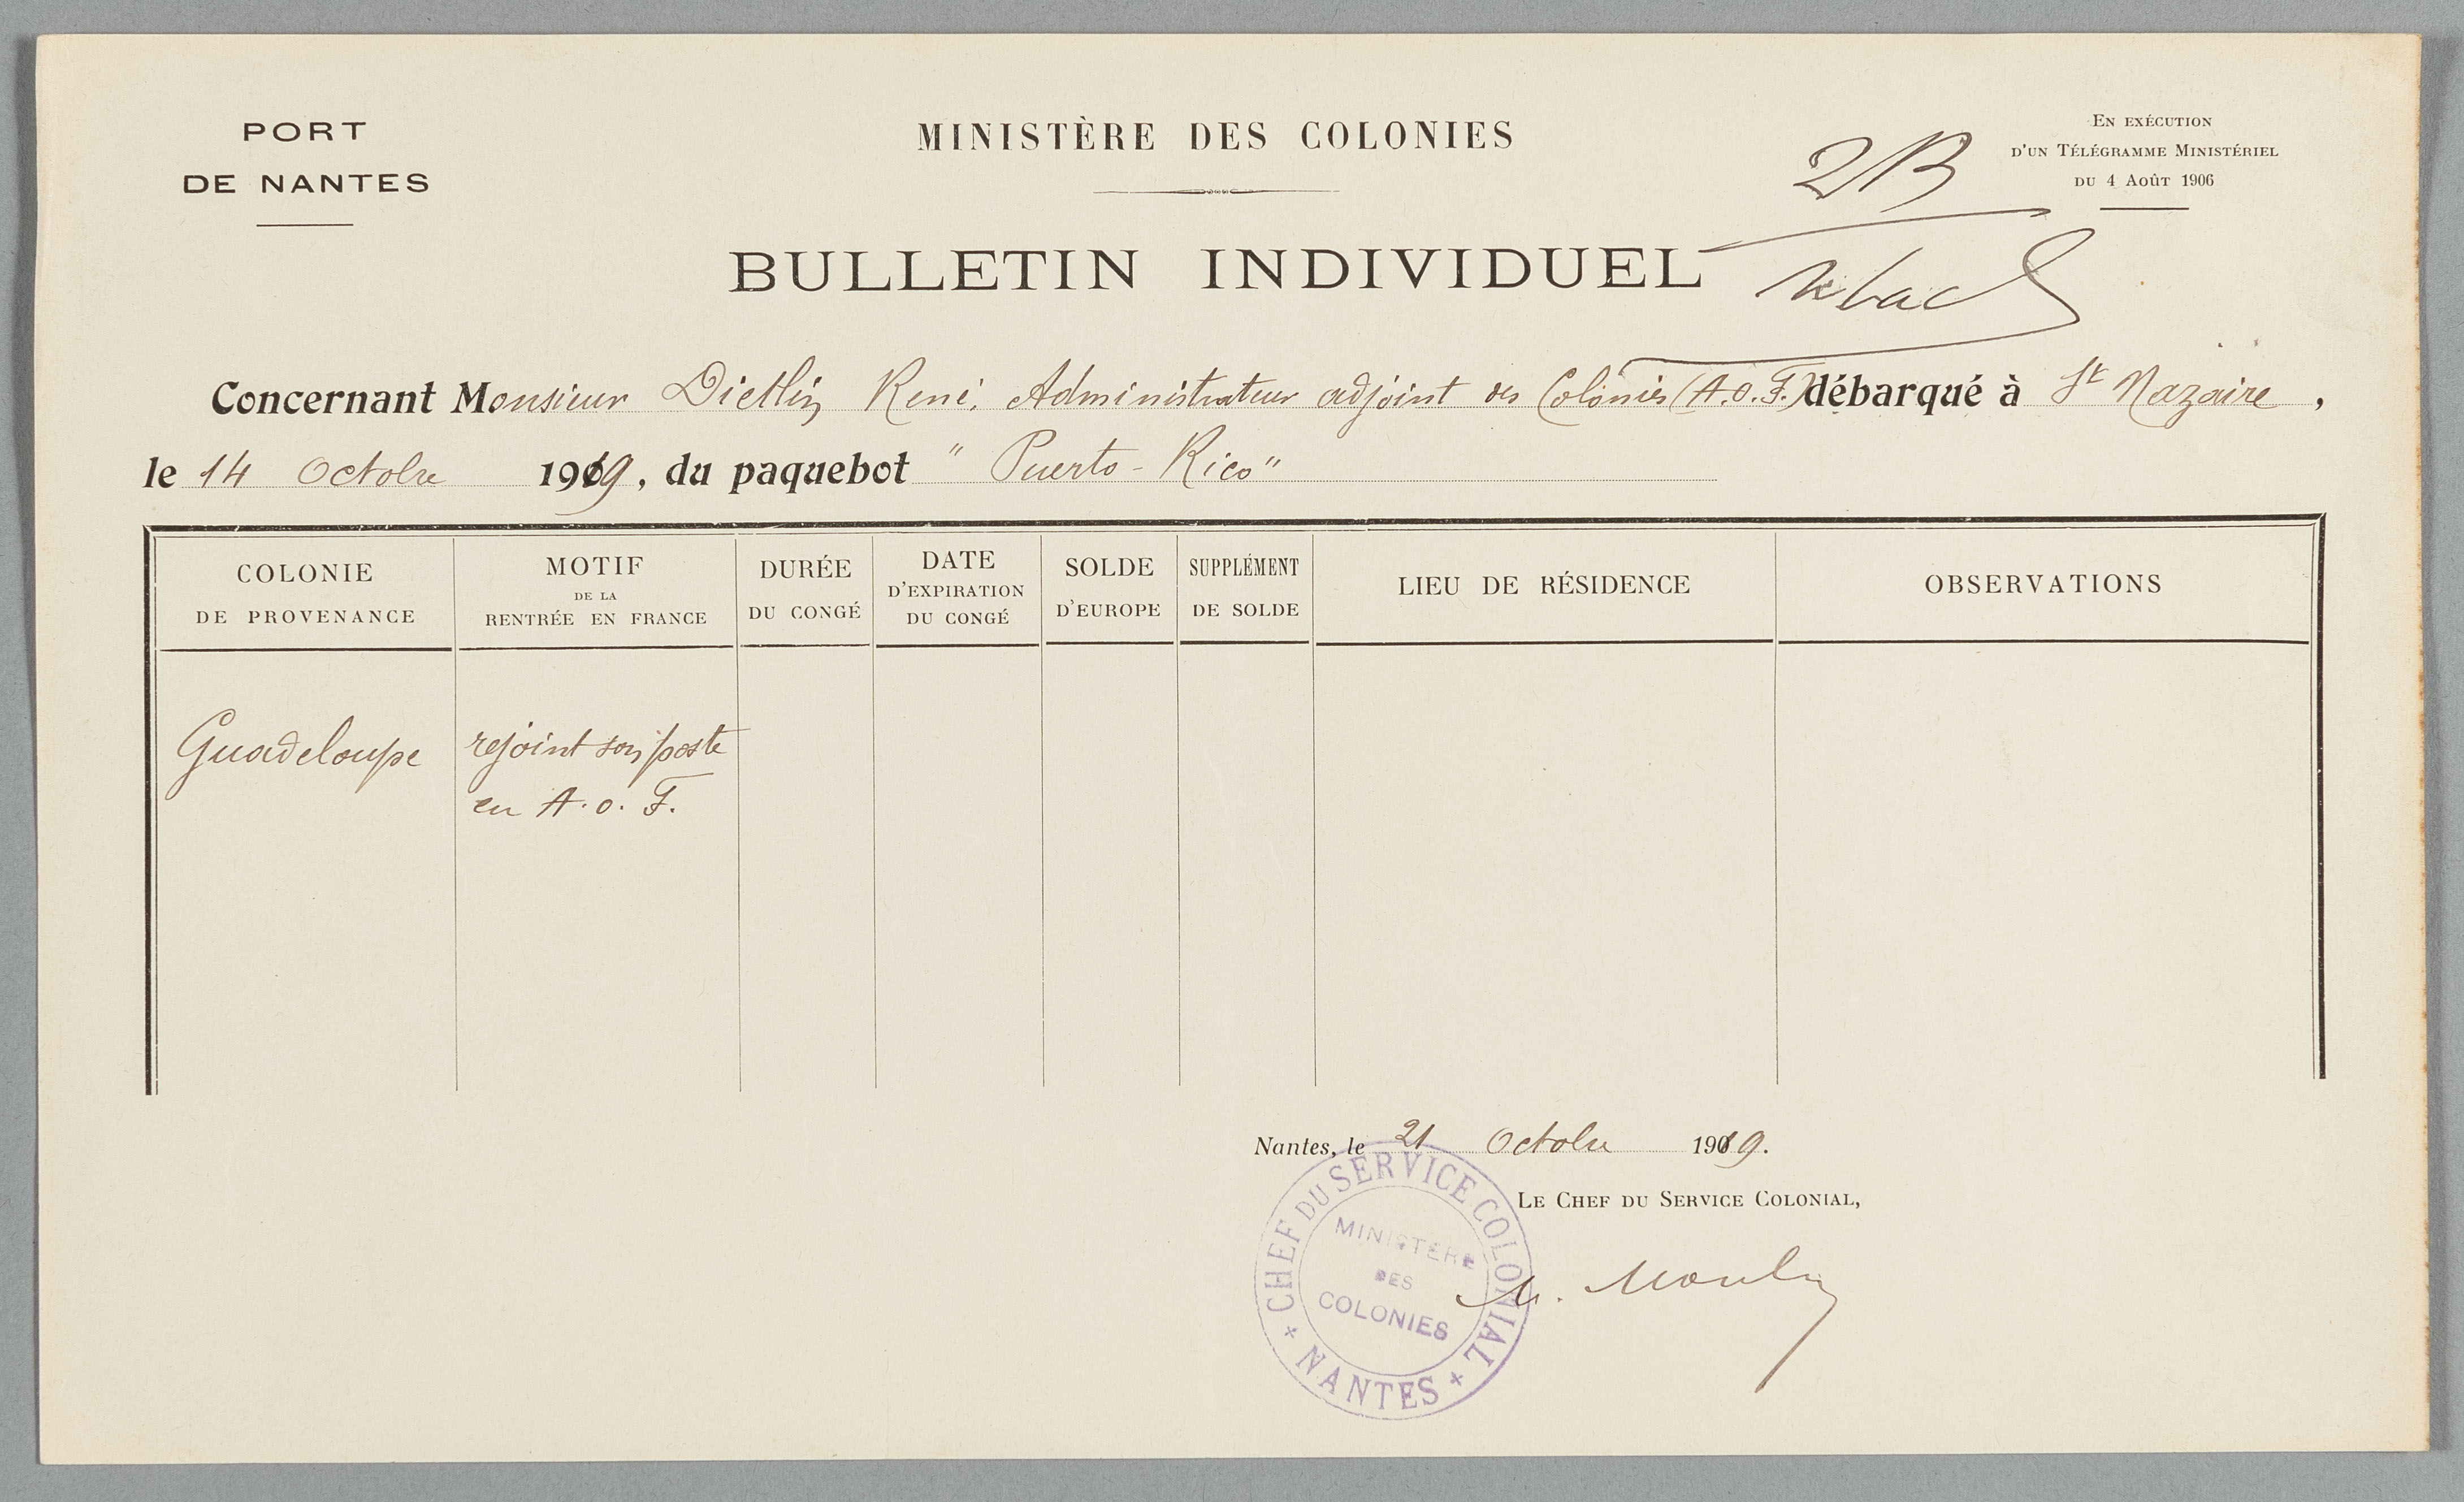 PORT
DE NANTES
MINISTÈRE DES COLONIES
2B
EN EXÉCUTION
D'UN TÉLÉGRAMME MINISTÉRIEL
DU 4 AOÛT 1906
BULLETIN INDIVIDUEL
Concernant Monsieur Dietlin René, Administrateur adjoint des Colonies (A.O.F.) débarqué à St Nazaire,
le 14 Octobre 1919, du paquebot "Puerto-Rico"
COLONIE
DE PROVENANCE
MOTIF
DE LA
RENTRÉE EN FRANCE
DURÉE
DU CONGÉ
DATE
D'EXPIRATION
DU CONGÉ
SOLDE
D'EUROPE
SUPPLÉMENT
DE SOLDE
LIEU DE RÉSIDENCE
OBSERVATIONS
Guadeloupe
rejoint son poste
en A.O.F.
Nantes, le 21 Octobre 1919.
LE CHEF DU SERVICE COLONIAL,
CHEF DU SERVICE COLONIAL
MINISTÈRE
DES
COLONIES
NANTES